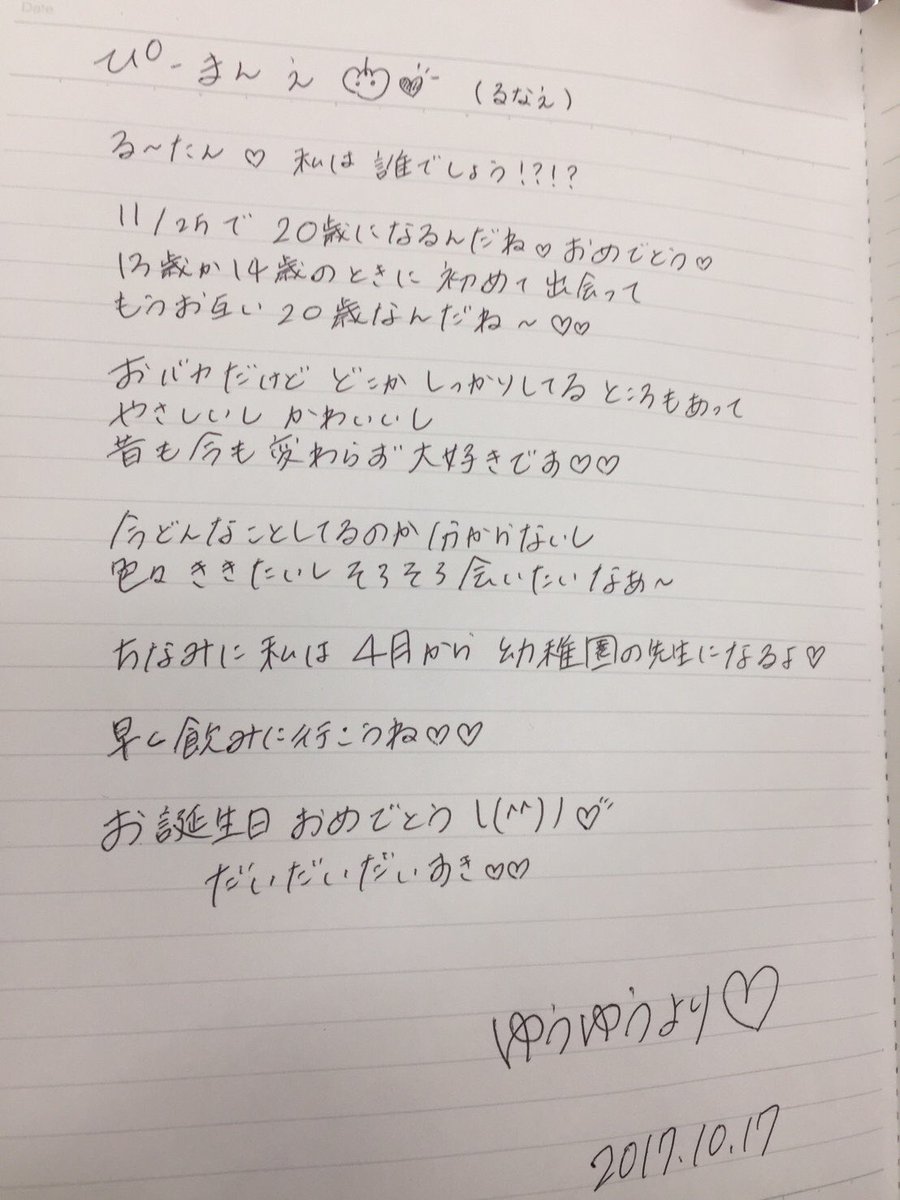 Date
ぴーまんえ ♡ (るなえ)
る〜たん♡ 私は誰でしょう!?!?
11/25で 20歳になるんだね♡おめでとう♡
13歳か14歳のときに 初めて出会って
もうお互い20歳なんだね〜♡♡
おバカだけど どこか しっかりしてる ところもあって
やさしいし かわいいし
昔も今も変わらず大好きです♡♡
今どんなことしてるのか分からないし
色々ききたいし そろそろ会いたいなぁ〜
ちなみに 私は 4月から 幼稚園の先生になるよ♡
早く飲みに行こうね♡♡
お誕生日おめでとう \(^^)/♡
だいだいだいすき♡♡
ゆうゆうより♡
2017.10.17